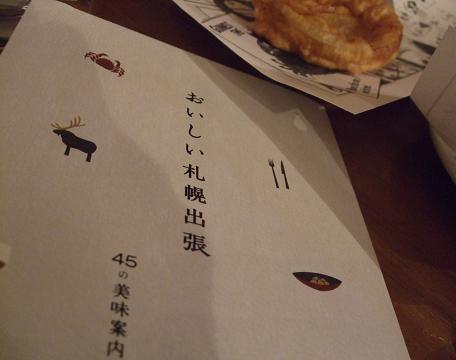 おいしい札幌出張
45の美味案内